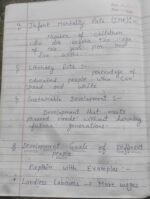 Infant Mortality Rate (IMR):-
Number of children
who die before the age
of one year per 1000
live
Literacy Rate :-
percentage of
educated people who can
read and write
Sustainable Development :-
Development that meets
present needs without harming
future generations.
Development Goals of Different
people
Explain with Examples :-
Landless Labourers → More wages